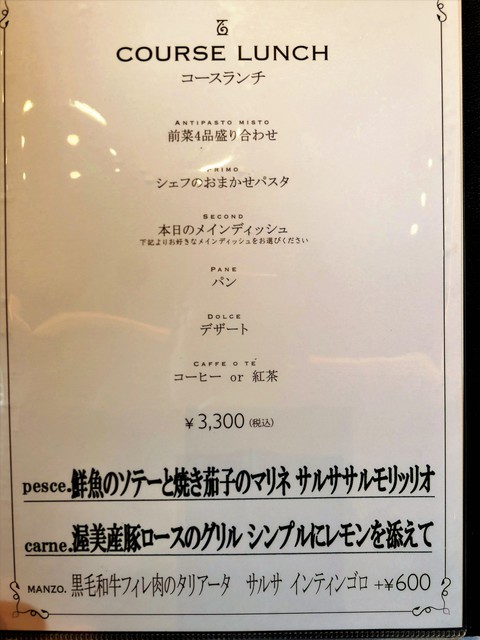 COURSE LUNCH
コースランチ
ANTIPASTO MISTO
前菜4品盛り合わせ
PRIMO
シェフのおまかせパスタ
SECOND
本日のメインディッシュ
下記よりお好きなメインディッシュをお選びください
PANE
パン
DOLCE
デザート
CAFFE O TÉ
コーヒー or 紅茶
¥3,300(税込)
pesce.鮮魚のソテーと焼き茄子のマリネ サルササルモリッリオ
carne.渥美産豚ロースのグリル シンプルにレモンを添えて
MANZO. 黒毛和牛フィレ肉のタリアータ サルサ インティンゴロ +¥600